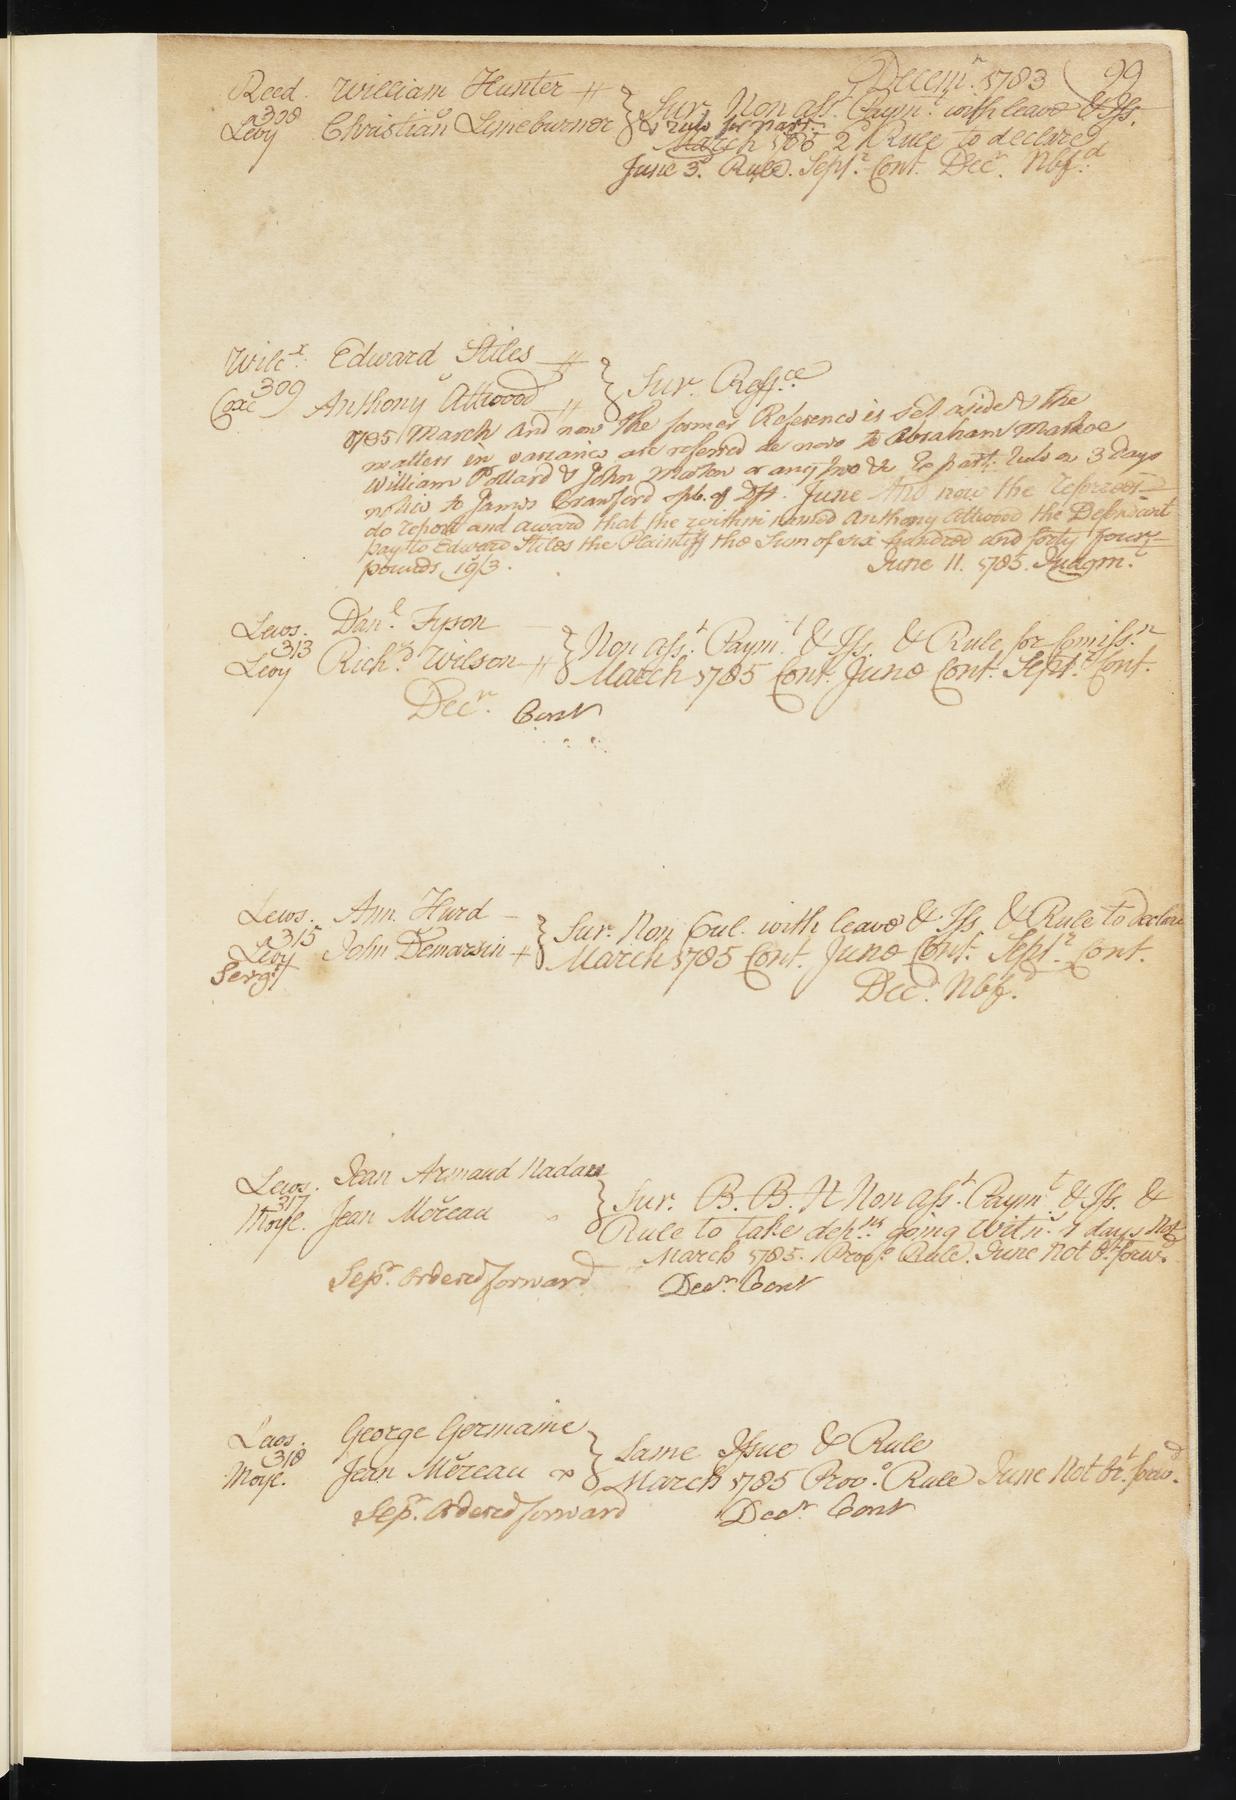 Decemr. 1783 99
Reed. William Hunter
308
Levy Christian Limeburner
Sur. Non asst. Paymt. with leave & Iss.
& rule for part.
March 1785 2d Rule to declare
June 3d. Rule. Septr. Cont. Decr. Nbfd.
Wilcx. Edward Stiles
309
Coxe Anthony Attwood
Sur. Reffce.
1785 March And now the former Reference is set aside & the
matters in variance are referred de novo to Abraham Markoe
William Pollard & John Morton or any two &c. Ex parte Rule on 3 days
notice to James Crawford spb. of Dft. June And now the referees
do report and award that the within named Anthony Attwood the Defendant
pay to Edward Stiles the Plaintiff the Sum of six hundred and forty four
pounds 19/3. June 11. 1785. Judgmt.
Lews. Danl. Tyson
313
Levy Richd. Wilson
Non asst. Paymt. & Iss. & Rule for Comissn.
March 1785 Cont. June Cont. Septr. Cont.
Decr. Cont
Lews. Ann Hurd
315
Levy John Demarsin
Sergt
Sur. Non Cul. with leave & Iss & Rule to declare
March 1785 Cont. June Cont. Septr. Cont.
Decr. Nbfd.
Lews. Jean Armaud Nadau
317
Moyl. Jean Mercau
Sur. B. B. H Non asst. Paymt. & Iss. &
Rule to take depns. going Witns. 4 days Not
March 1785. Proo. Rule. June Not Or. forwd.
Sepr. Ordered forward Decr. Cont
Lews. George Germaine
318
Moyl. Jean Mercau
Same Issue & Rule
March 1785 Proo. Rule June Not Or. forwd.
Sepr. Ordered forward Decr. Cont